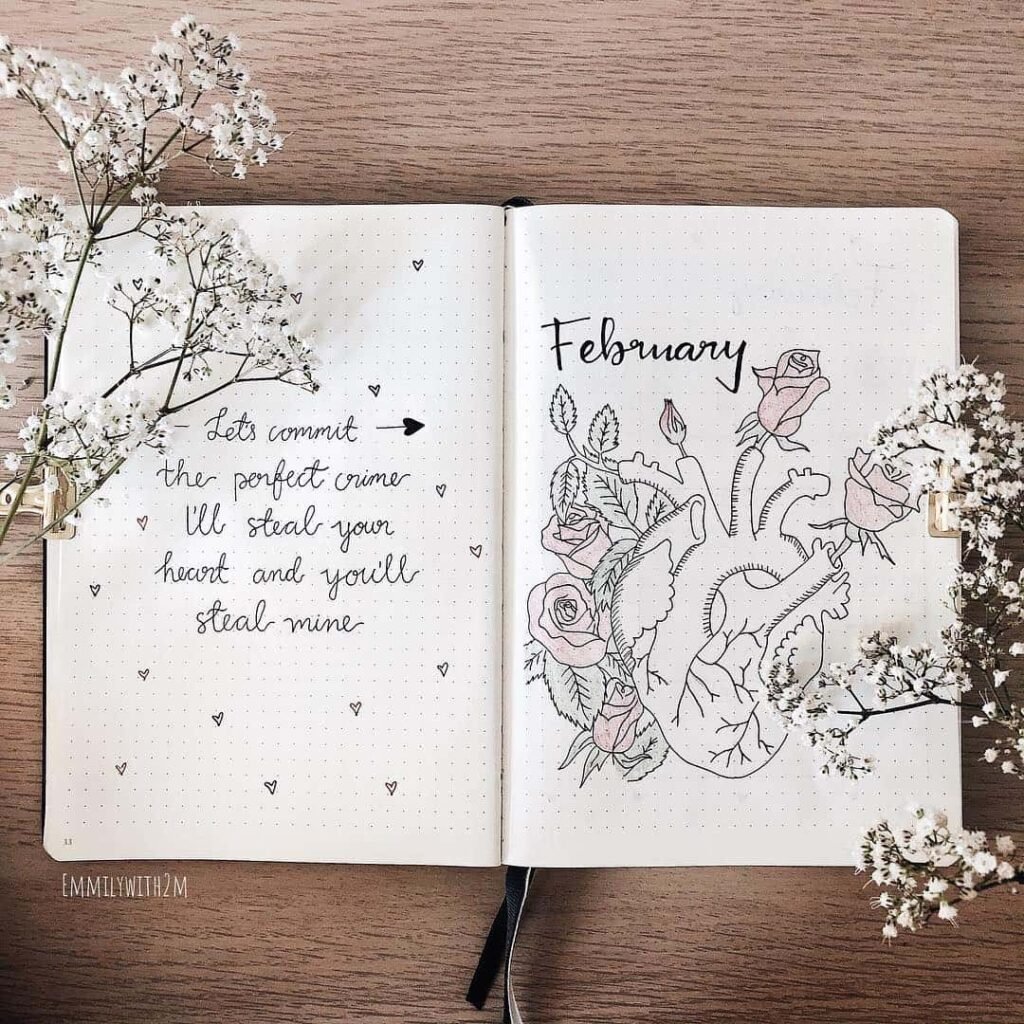 Lets commit
the perfect crime
I'll steal your
heart and you'll
steal mine
33
February
EMMILYWITH2M